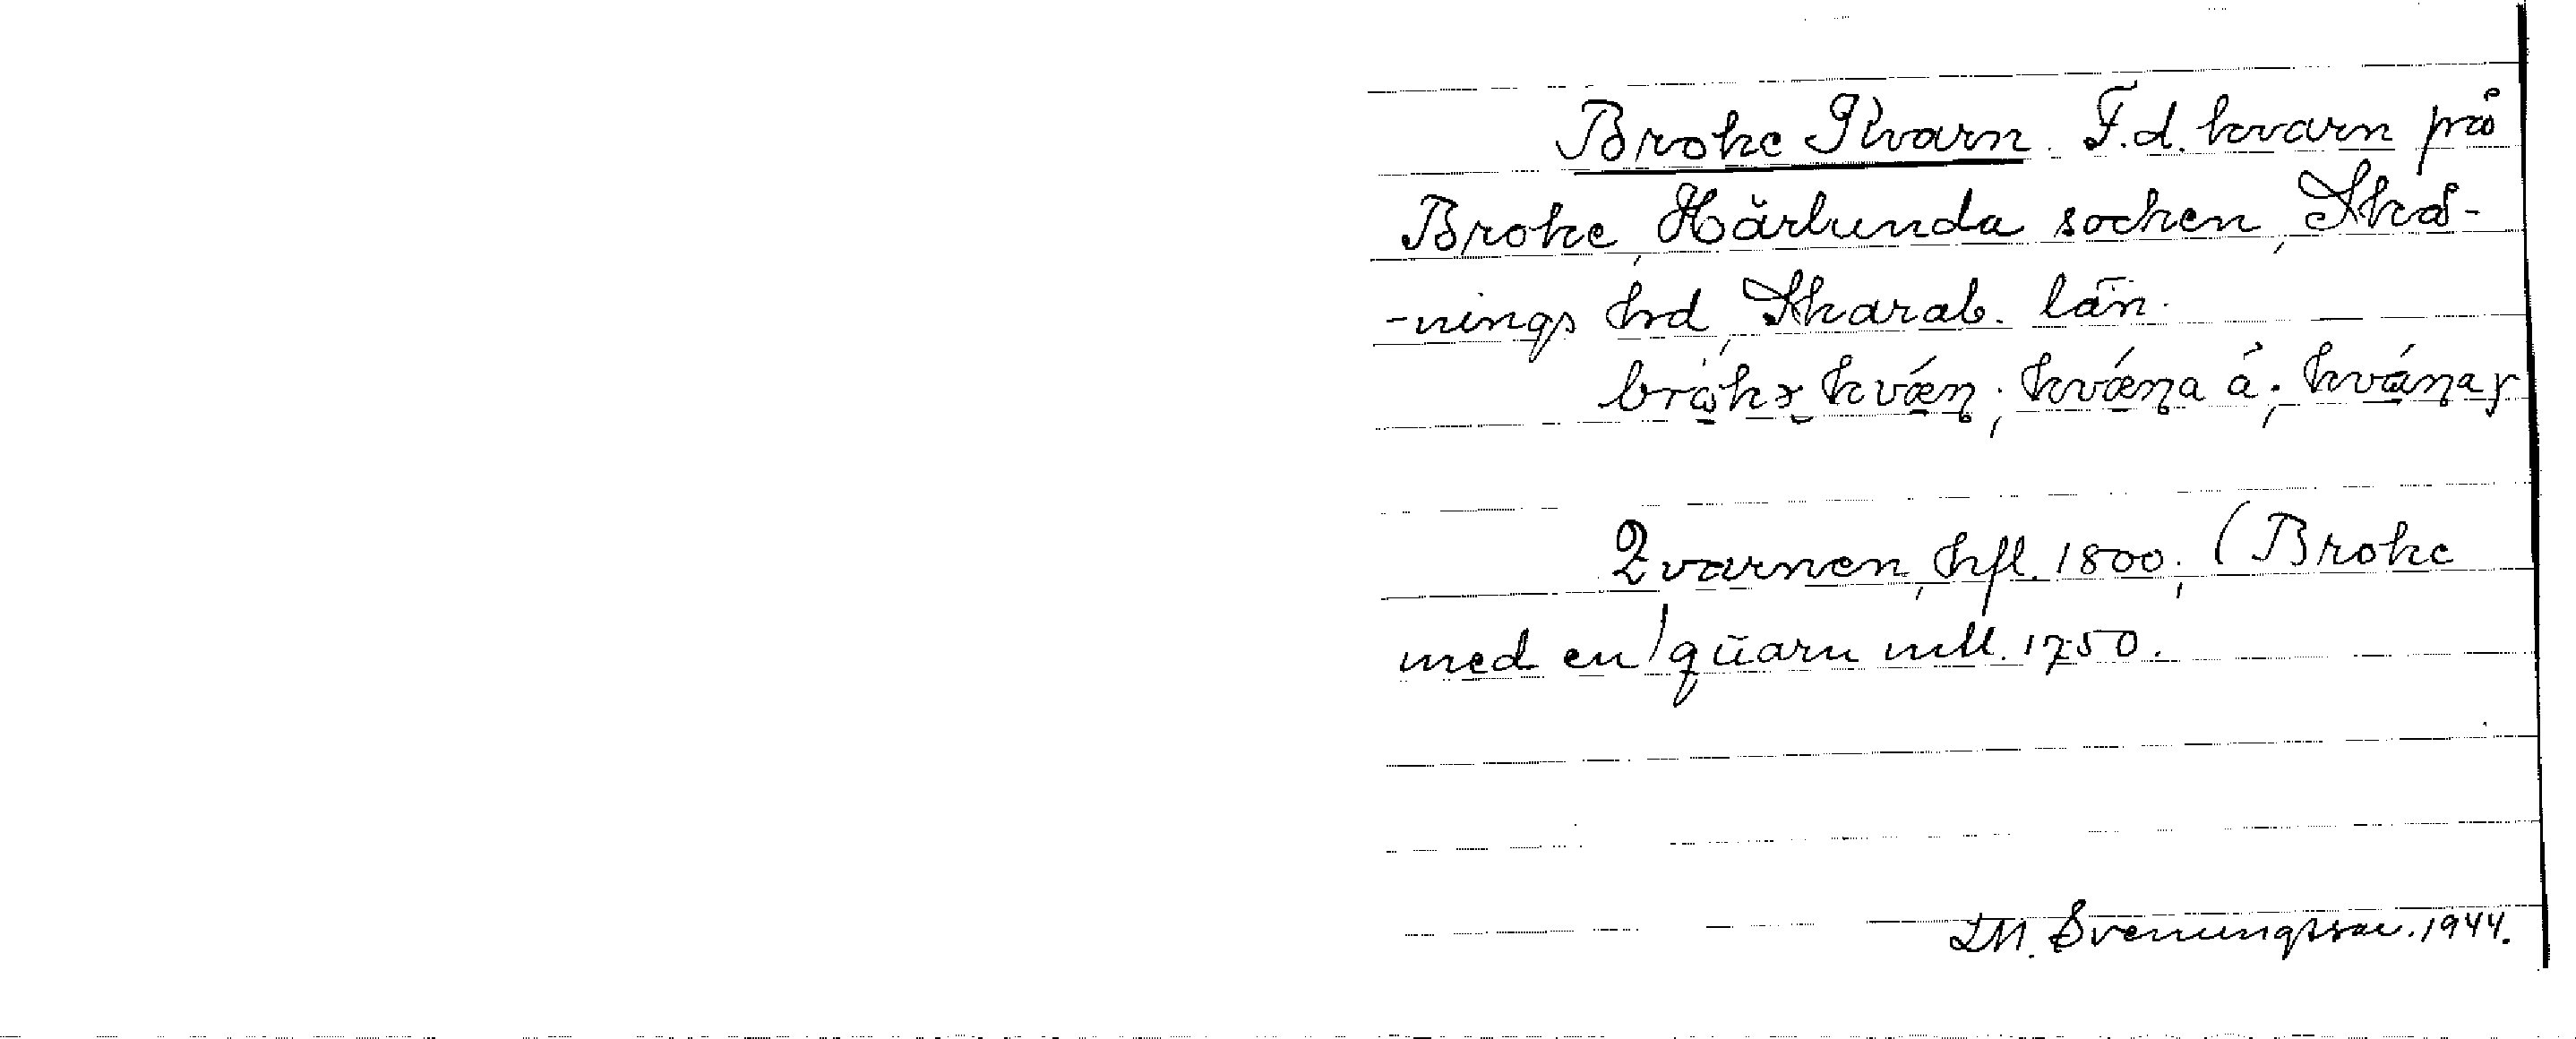 Broke Kvarn. F.d. kvarn på
Broke, Härlunda socken, Skå-
-nings hrd, Skarab. län.
kvǽn; kvǽna á;
Qvarnen, hfl. 1800; (Broke
med en) qŭarn mtl. 1750.
Svenungsson. 1944.